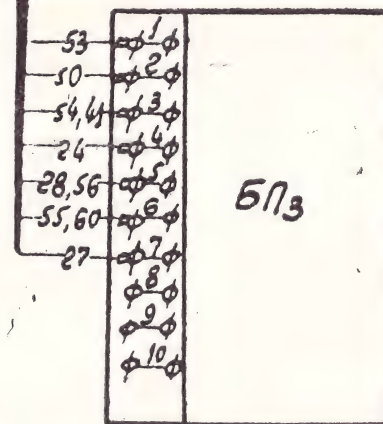 53 1
50 2
54,41 3
24 4
28,56 5
55,60 6
27 7
8
9
10
БП3